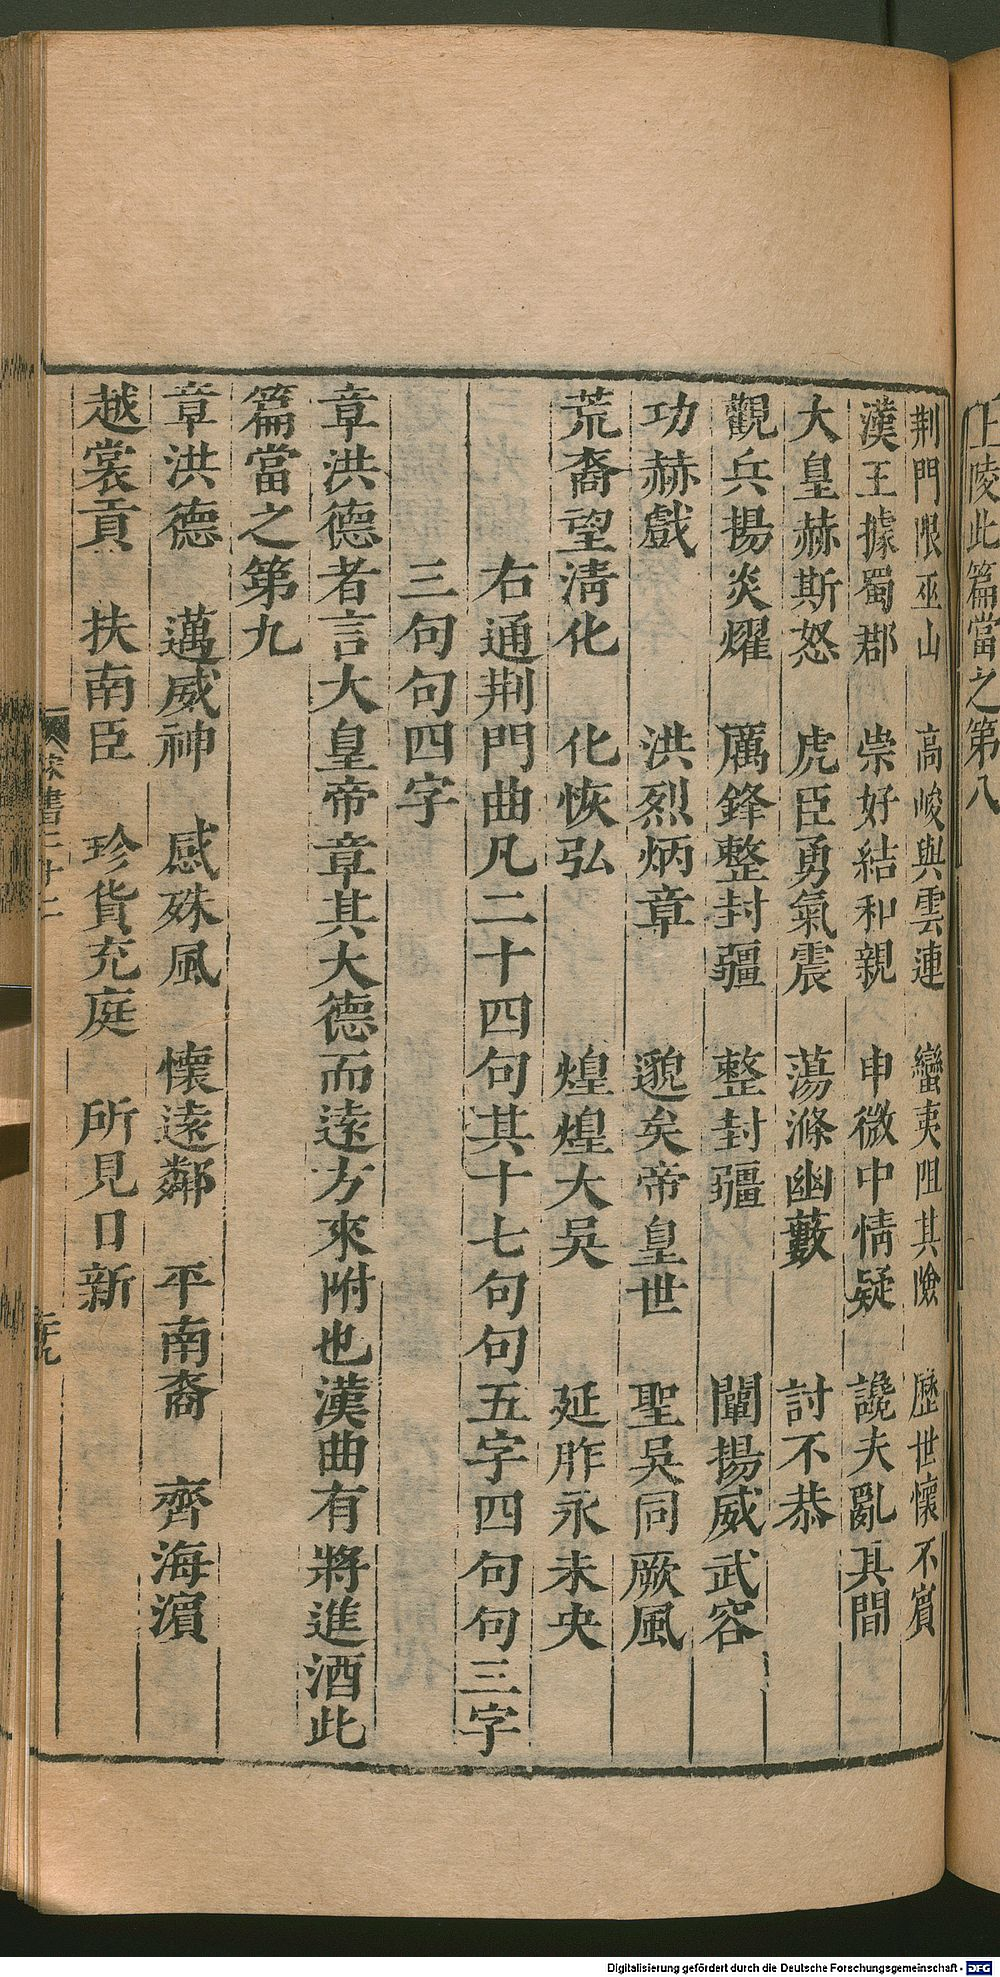 上陵此篇當之第八
荆門限巫山　高峻與雲連　蠻夷阻其險　歷世懷不賔
漢王據蜀郡　崇好結和親　申微中情疑　讒夫亂其間
大皇赫斯怒　虎臣勇氣震　蕩滌幽藪　討不恭
觀兵揚炎燿　厲鋒整封疆　整封疆　闡揚威武容
功赫戲　洪烈炳章　邈矣帝皇世　聖吳同厥風
荒裔望淸化　化恢弘　煌煌大吳　延胙永未央
右通荆門曲凡二十四句其十七句句五字四句句三字
三句句四字
章洪德者言大皇帝章其大德而遠方來附也漢曲有將進酒此
篇當之第九
章洪德　邁威神　感殊風　懷遠鄰　平南裔　齊海濵
越裳貢　扶南臣　珍貨充庭　所見日新
宋書二十二
Digitalisierung gefördert durch die Deutsche Forschungsgemeinschaft - DFG